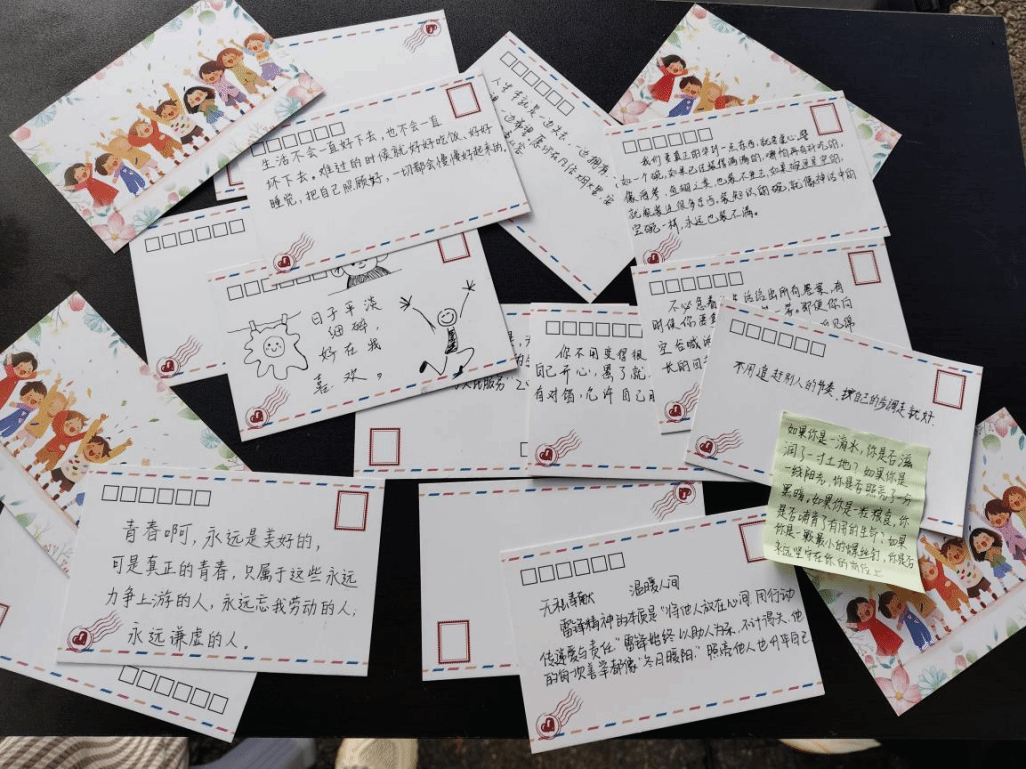 生活不会一直好下去,也不会一直
坏下去。难过的时候就好好吃饭、好好
睡觉,把自己照顾好,一切都会慢慢好起来的。
人生本就是一边失去,一边拥有,
我们要真正的学习一点东西,就要虚心。譬
如一个碗,如果已经装得满满的,哪怕再有好吃的,
像海参、鱼翅之类,也装不进去,如果碗是空的,
就能装进很多东西。装知识的碗,就像神话中的
宝碗一样,永远也装不满。
日子平淡
细碎,
好在我
喜欢。
不必急着
给出所有答案,有
时使你要
等。即使你向
空谷喊
长的回
你不用变得很
自己开心,累了就
有对错,允许自己
人民服务
不用追赶别人的节奏,按自己的步调走就好.
如果你是一滴水,你是否滋
润了一寸土地?如果你是
一线阳光,你是否照亮了一分
黑暗,如果你是一粒粮食,你
是否哺育了有用的生命;如果
你是一颗最小的螺丝钉,你是否
永远坚守在你的岗位上
青春啊,永远是美好的,
可是真正的青春,只属于这些永远
力争上游的人,永远忘我劳动的人;
永远谦虚的人。
无私奉献 温暖人间
雷锋精神的本质是“将他人放在心间,用行动
传递爱与责任”雷锋始终以助人为乐,不计得失,他
的每次善举都像“冬日暖阳”照亮他人也升华自己